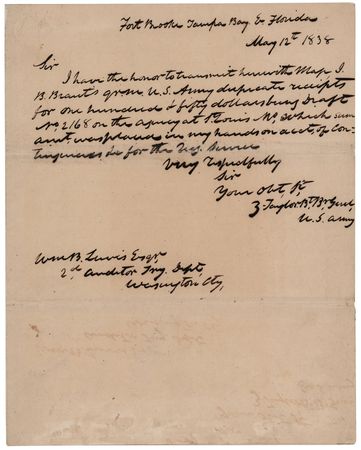 Fort Brooke Tampa Bay E Florida
May 12th 1838
Sir
I have the honor to transmit herewith Maj. I.
B. Brant's qrm. U.S. Army duplicate receipts
for one hundred & fifty dollars being Draft
No 2168 on the agency at St Louis Mo. which sum
amt. was placed in my hands on acct. of Con-
tingencies for the Service
Very respectfully
Sir
Your Obt. St.
Z Taylor Bt. Br Genl,
U.S. Army
Wm B. Lewis Esqr,
2d Auditor Try. Dept,
Washington City,